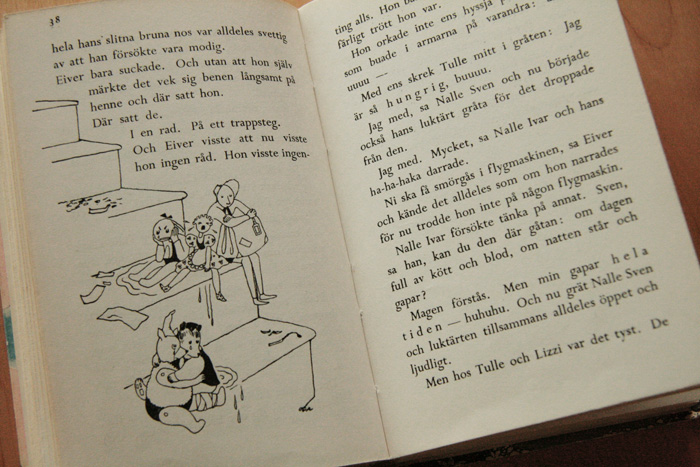 38
hela hans slitna bruna nos var alldeles svettig
av att han försökte vara modig.
Eiver bara suckade. Och utan att hon själv
märkte det vek sig benen långsamt på
henne och där satt hon.
Där satt de.
I en rad. På ett trappsteg.
Och Eiver visste att nu visste
hon ingen råd. Hon visste ingen-
ting alls. Hon
färligt trött hon var.
Hon orkade inte ens hyssja
som buade i armarna på varandra:
uuuu —
Med ens skrek Tulle mitt i gråten: Jag
är så hungrig, buuuu.
Jag med, sa Nalle Sven och nu började
också hans luktärt gråta för det droppade
från den.
Jag med. Mycket, sa Nalle Ivar och hans
ha-ha-haka darrade.
Ni ska få smörgås i flygmaskinen, sa Eiver
och kände det alldeles som om hon narrades
för nu trodde hon inte på någon flygmaskin.
Nalle Ivar försökte tänka på annat. Sven,
sa han, kan du den där gåtan: om dagen
full av kött och blod, om natten står och
gapar?
Magen förstås. Men min gapar hela
tiden — huhuhu. Och nu grät Nalle Sven
och luktärten tillsammans alldeles öppet och
ljudligt.
Men hos Tulle och Lizzi var det tyst. De